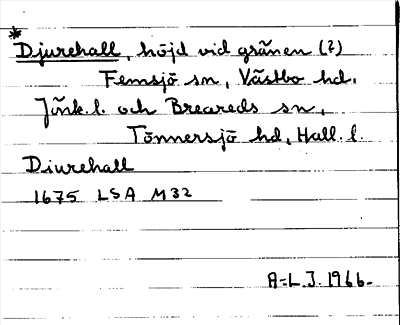 *Djurehall, höjd vid gränen (?)
Femsjö sn, Västbo hd.
Jönk. l. och Breareds sn,
Tönnersjö hd, Hall. l.
Diurehall
1675 LSA M32
A-L. J. 1966.